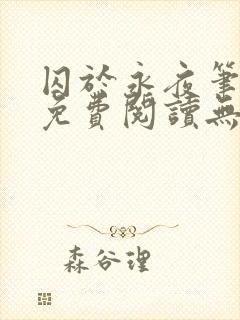 囚於永夜筆
免費閱讀無
森谷理